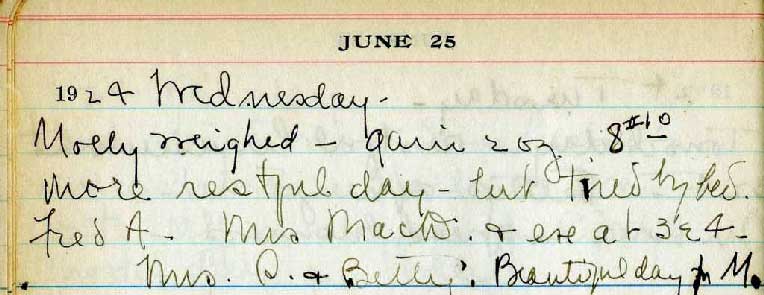 JUNE 25
1924 Wednesday -
Molly weighed - gain 2 oz 8 # 10
more restful day - but tired by bed.
Fred A - Mrs MacD. & at 324 -
Mrs. C. & Betty. Beautiful day for M.